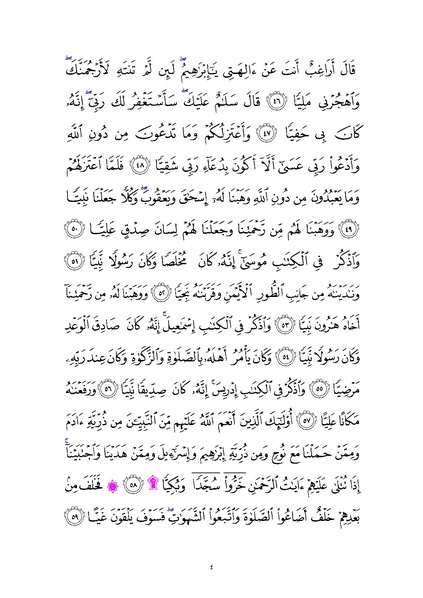 قَالَ أَرَاغِبٌ أَنتَ عَنْ ءَالِهَتِى يَٰٓإِبْرَٰهِيمُ ۖ لَئِن لَّمْ تَنتَهِ لَأَرْجُمَنَّكَ ۖ
وَٱهْجُرْنِى مَلِيًّا ﴿٤٦﴾ قَالَ سَلَٰمٌ عَلَيْكَ ۖ سَأَسْتَغْفِرُ لَكَ رَبِّىٓ ۖ إِنَّهُۥ
كَانَ بِى حَفِيًّا ﴿٤٧﴾ وَأَعْتَزِلُكُمْ وَمَا تَدْعُونَ مِن دُونِ ٱللَّهِ
وَأَدْعُوا۟ رَبِّى عَسَىٰٓ أَلَّآ أَكُونَ بِدُعَآءِ رَبِّى شَقِيًّا ﴿٤٨﴾ فَلَمَّا ٱعْتَزَلَهُمْ
وَمَا يَعْبُدُونَ مِن دُونِ ٱللَّهِ وَهَبْنَا لَهُۥٓ إِسْحَٰقَ وَيَعْقُوبَ ۖ وَكُلًّا جَعَلْنَا نَبِيًّا
﴿٤٩﴾ وَوَهَبْنَا لَهُم مِّن رَّحْمَتِنَا وَجَعَلْنَا لَهُمْ لِسَانَ صِدْقٍ عَلِيًّا ﴿٥٠﴾
وَٱذْكُرْ فِى ٱلْكِتَٰبِ مُوسَىٰٓ ۚ إِنَّهُۥ كَانَ مُخْلَصًا وَكَانَ رَسُولًا نَّبِيًّا ﴿٥١﴾
وَنَٰدَيْنَٰهُ مِن جَانِبِ ٱلطُّورِ ٱلْأَيْمَنِ وَقَرَّبْنَٰهُ نَجِيًّا ﴿٥٢﴾ وَوَهَبْنَا لَهُۥ مِن رَّحْمَتِنَآ
أَخَاهُ هَٰرُونَ نَبِيًّا ﴿٥٣﴾ وَٱذْكُرْ فِى ٱلْكِتَٰبِ إِسْمَٰعِيلَ ۚ إِنَّهُۥ كَانَ صَادِقَ ٱلْوَعْدِ
وَكَانَ رَسُولًا نَّبِيًّا ﴿٥٤﴾ وَكَانَ يَأْمُرُ أَهْلَهُۥ بِٱلصَّلَوٰةِ وَٱلزَّكَوٰةِ وَكَانَ عِندَ رَبِّهِۦ
مَرْضِيًّا ﴿٥٥﴾ وَٱذْكُرْ فِى ٱلْكِتَٰبِ إِدْرِيسَ ۚ إِنَّهُۥ كَانَ صِدِّيقًا نَّبِيًّا ﴿٥٦﴾ وَرَفَعْنَٰهُ
مَكَانًا عَلِيًّا ﴿٥٧﴾ أُو۟لَٰٓئِكَ ٱلَّذِينَ أَنْعَمَ ٱللَّهُ عَلَيْهِم مِّنَ ٱلنَّبِيِّۦنَ مِن ذُرِّيَّةِ ءَادَمَ
وَمِمَّنْ حَمَلْنَا مَعَ نُوحٍ وَمِن ذُرِّيَّةِ إِبْرَٰهِيمَ وَإِسْرَٰٓءِيلَ وَمِمَّنْ هَدَيْنَا وَٱجْتَبَيْنَآ ۚ
إِذَا تُتْلَىٰ عَلَيْهِمْ ءَايَٰتُ ٱلرَّحْمَٰنِ خَرُّوا۟ سُجَّدًا وَبُكِيًّا ۩ ﴿٥٨﴾ ۞ فَخَلَفَ مِنۢ
بَعْدِهِمْ خَلْفٌ أَضَاعُوا۟ ٱلصَّلَوٰةَ وَٱتَّبَعُوا۟ ٱلشَّهَوَٰتِ ۖ فَسَوْفَ يَلْقَوْنَ غَيًّا ﴿٥٩﴾
٤